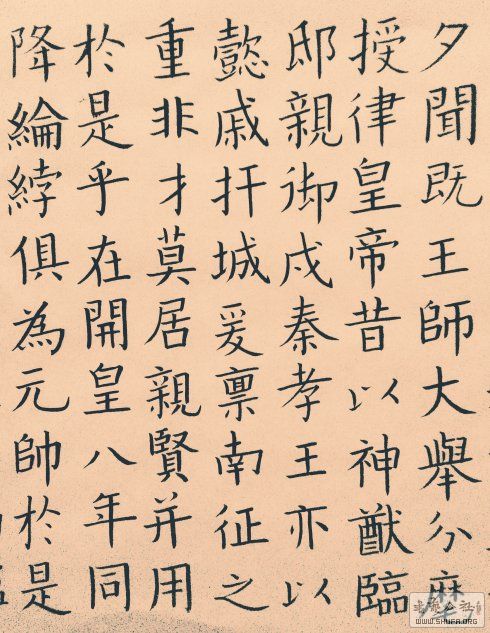 夕聞既王師大舉分麾
授律皇帝昔以神猷臨
邸親御戎秦孝王亦以
懿戚扞城爰禀南征之
重非才莫居親賢并用
於是乎在開皇八年同
降綸綍俱為元帥於是
WWW.SHUFA.ORG